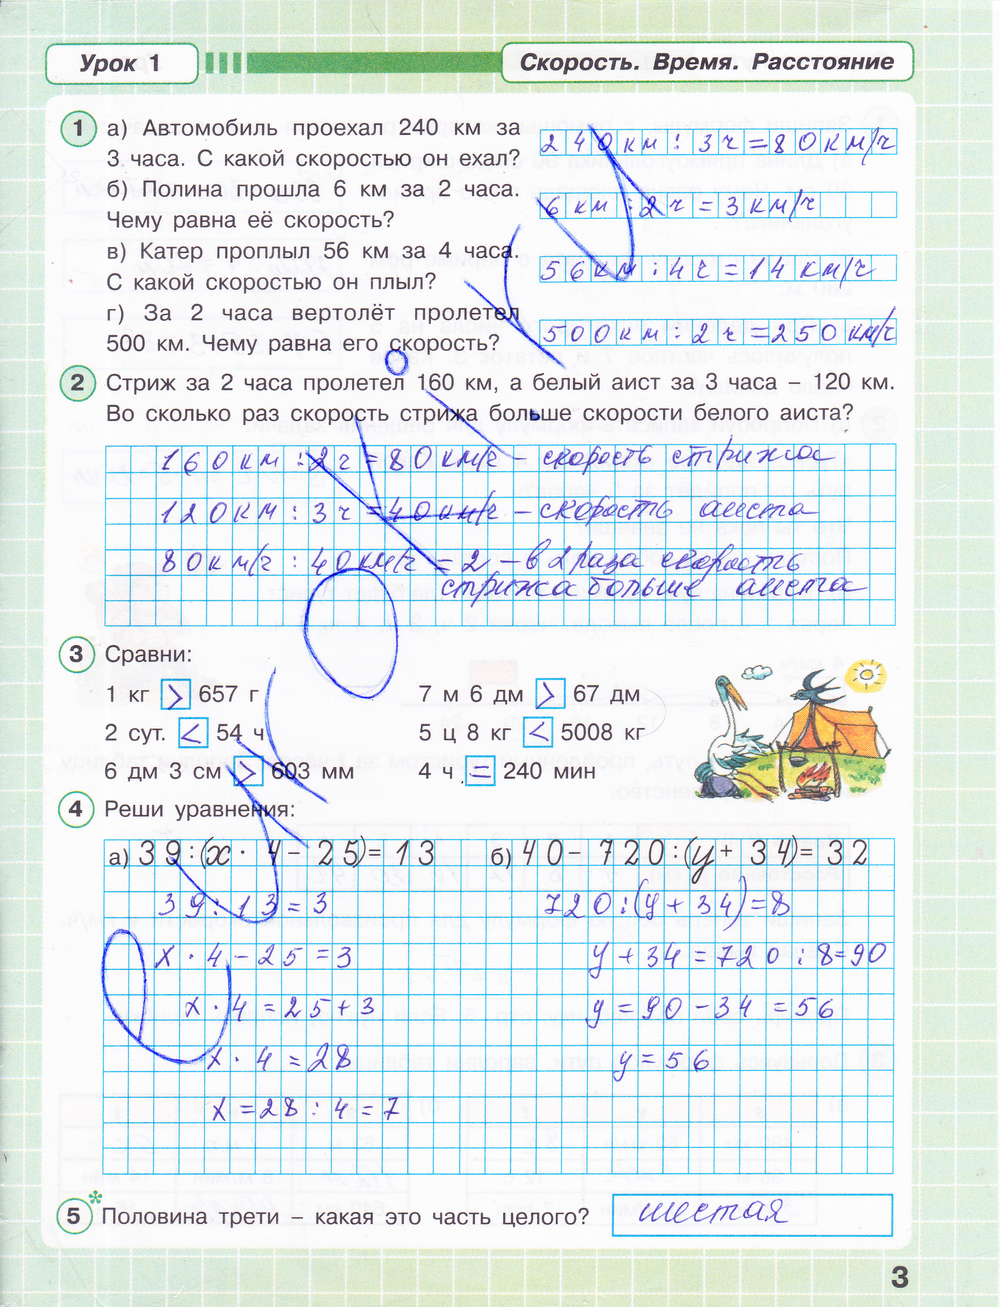 Урок 1
Скорость. Время. Расстояние
1 а) Автомобиль проехал 240 км за
3 часа. С какой скоростью он ехал?
240 км : 3 ч = 80 км/ч
б) Полина прошла 6 км за 2 часа.
Чему равна её скорость?
6 км : 2 ч = 3 км/ч
в) Катер проплыл 56 км за 4 часа.
С какой скоростью он плыл?
56 км : 4 ч = 14 км/ч
г) За 2 часа вертолёт пролетел
500 км. Чему равна его скорость?
500 км : 2 ч = 250 км/ч
2 Стриж за 2 часа пролетел 160 км, а белый аист за 3 часа – 120 км.
Во сколько раз скорость стрижа больше скорости белого аиста?
160 км : 2 ч = 80 км/ч – скорость стрижа
120 км : 3 ч = 40 км/ч – скорость аиста
80 км/ч : 40 км/ч = 2 – в 2 раза скорость
стрижа больше аиста
3 Сравни:
1 кг > 657 г
7 м 6 дм > 67 дм
2 сут. < 54 ч
5 ц 8 кг < 5008 кг
6 дм 3 см > 603 мм
4 ч = 240 мин
4 Реши уравнения:
а) 39 : (x · 4 – 25) = 13
39 : 13 = 3
x · 4 – 25 = 3
x · 4 = 25 + 3
x · 4 = 28
x = 28 : 4 = 7
б) 40 – 720 : (y + 34) = 32
720 : (y + 34) = 8
y + 34 = 720 : 8 = 90
y = 90 – 34 = 56
y = 56
5* Половина трети – какая это часть целого?
шестая
3